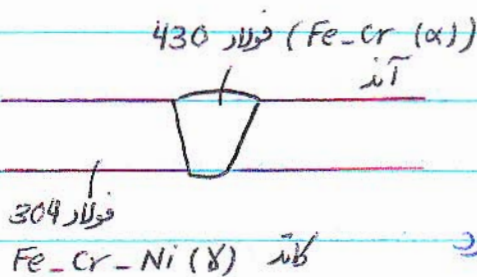 فولاد 430 (Fe-Cr (α))
آند
فولاد 304
Fe-Cr-Ni (γ) کاتد